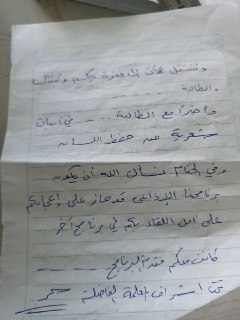 وننتقل الآن إلى فقرة حكم وأمثال
الطالبة
وأخيراً مع الطالبة .... في أبيات
شعرية عن حفظ اللسان
وفي الختام نسأل الله أن يكون
برنامجنا الإذاعي قد حاز على إعجابكم
على أمل اللقاء بكم في برنامج آخر
كانت معكم مقدمة البرنامج
تحت إشراف المعلمة الفاضلة